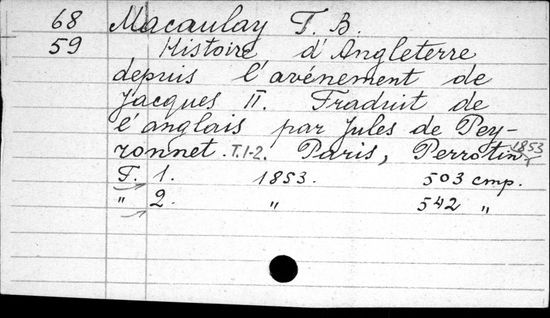 68 Macaulay T. B.
59 Histoire d'Angleterre
depuis l'avénement de
Jacques II. Traduit de
l'anglais par Jules de Pey-
ronnet. T.1-2. Paris, Perrotin 1853
T. 1. 1853. 503 стр.
" 2. " 542 "